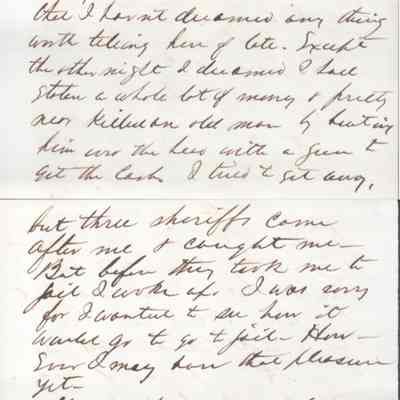 that I havnt dreamed any thing
worth telling here of late. Except
the other night I dreamed I had
stolen a whole lot of money & pretty
near killed an old man by beating
him over the head with a gun to
get the cash I tried to get away,
but three sheriffs come
after me & caught me—
But before they took me to
jail I woke up. I was sorry
for I wanted to see how it
would go to go to jail— How—
Ever I may have that pleasure
yet—